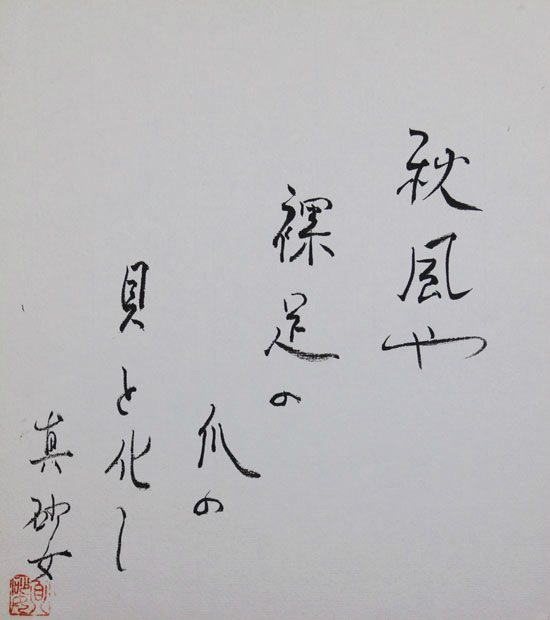 秋風や
裸足の
爪の
貝と化し
真砂女